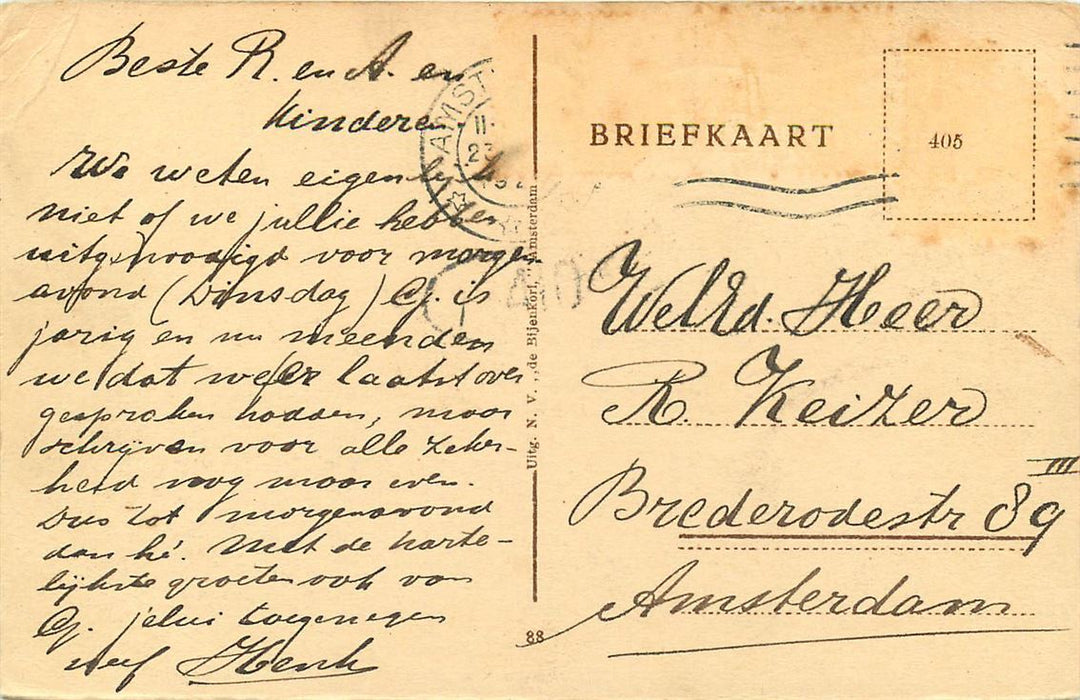 Beste R. en A. en
Kinderen
We weten eigenlijk
niet of we jullie hebben
uitgenoodigd voor morgen
avond (Dinsdag) Cj. is
jarig en nu meenden
we dat we er laatst over
gesproken hadden, maar
schrijven voor alle zeker-
heid nog maar even.
Dus tot morgenavond
dan hé. Met de harte-
lijkste groeten ook van
Cj. jelui toegenegen
neef Henk
AMST
II
23
Uitg. N. V. „de Bijenkorf, Amsterdam
88
BRIEFKAART
405
WelEd. Heer
R. Keizer
Brederodestr 89 III
Amsterdam